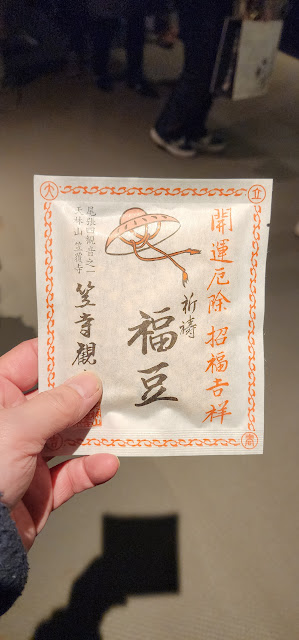 開運厄除 招福吉祥
祈祷
福豆
尾張四観音之一
天林山 笠覆寺
笠寺観
立
大